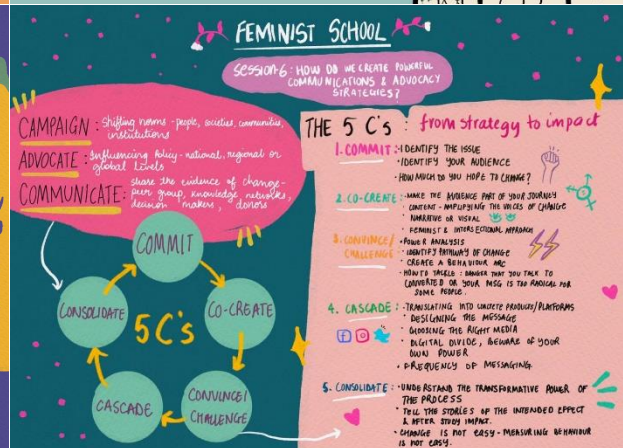 FEMINIST SCHOOL
SESSION-6: HOW DO WE CREATE POWERFUL
COMMUNICATIONS & ADVOCACY
STRATEGIES?
CAMPAIGN: Shifting norms - people, societies, communities,
institutions
ADVOCATE: Influencing Policy - national, regional or
global levels
COMMUNICATE: share the evidence of change -
peer group, knowledge, networks,
decision makers, donors
COMMIT
CO-CREATE
CONVINCE/
CHALLENGE
CASCADE
CONSOLIDATE
5 C's
THE 5 C's: from strategy to impact
1. COMMIT: • IDENTIFY THE ISSUE
• IDENTIFY YOUR AUDIENCE
• HOW MUCH DO YOU HOPE TO CHANGE?
2. CO-CREATE: • MAKE THE AUDIENCE PART OF YOUR JOURNEY
• CONTENT - AMPLIFYING THE VOICES OF CHANGE
NARRATIVE OR VISUAL
• FEMINIST & INTERSECTIONAL APPROACH
3. CONVINCE/
CHALLENGE
• POWER ANALYSIS
• IDENTIFY PATHWAY OF CHANGE
• CREATE A BEHAVIOUR ARC
• HOW TO TACKLE: DANGER THAT YOU TALK TO
CONVERTED OR YOUR MSG IS TOO RADICAL FOR
SOME PEOPLE.
4. CASCADE: • TRANSLATING INTO CONCRETE PRODUCTS/PLATFORMS
• DESIGNING THE MESSAGE
• CHOOSING THE RIGHT MEDIA
• DIGITAL DIVIDE, BEWARE OF YOUR
OWN POWER
• FREQUENCY OF MESSAGING
5. CONSOLIDATE: • UNDERSTAND THE TRANSFORMATIVE POWER OF
THE PROCESS
• TELL THE STORIES OF THE INTENDED EFFECT
& AFTER STUDY IMPACT.
• CHANGE IS NOT EASY - MEASURING BEHAVIOUR
IS NOT EASY.